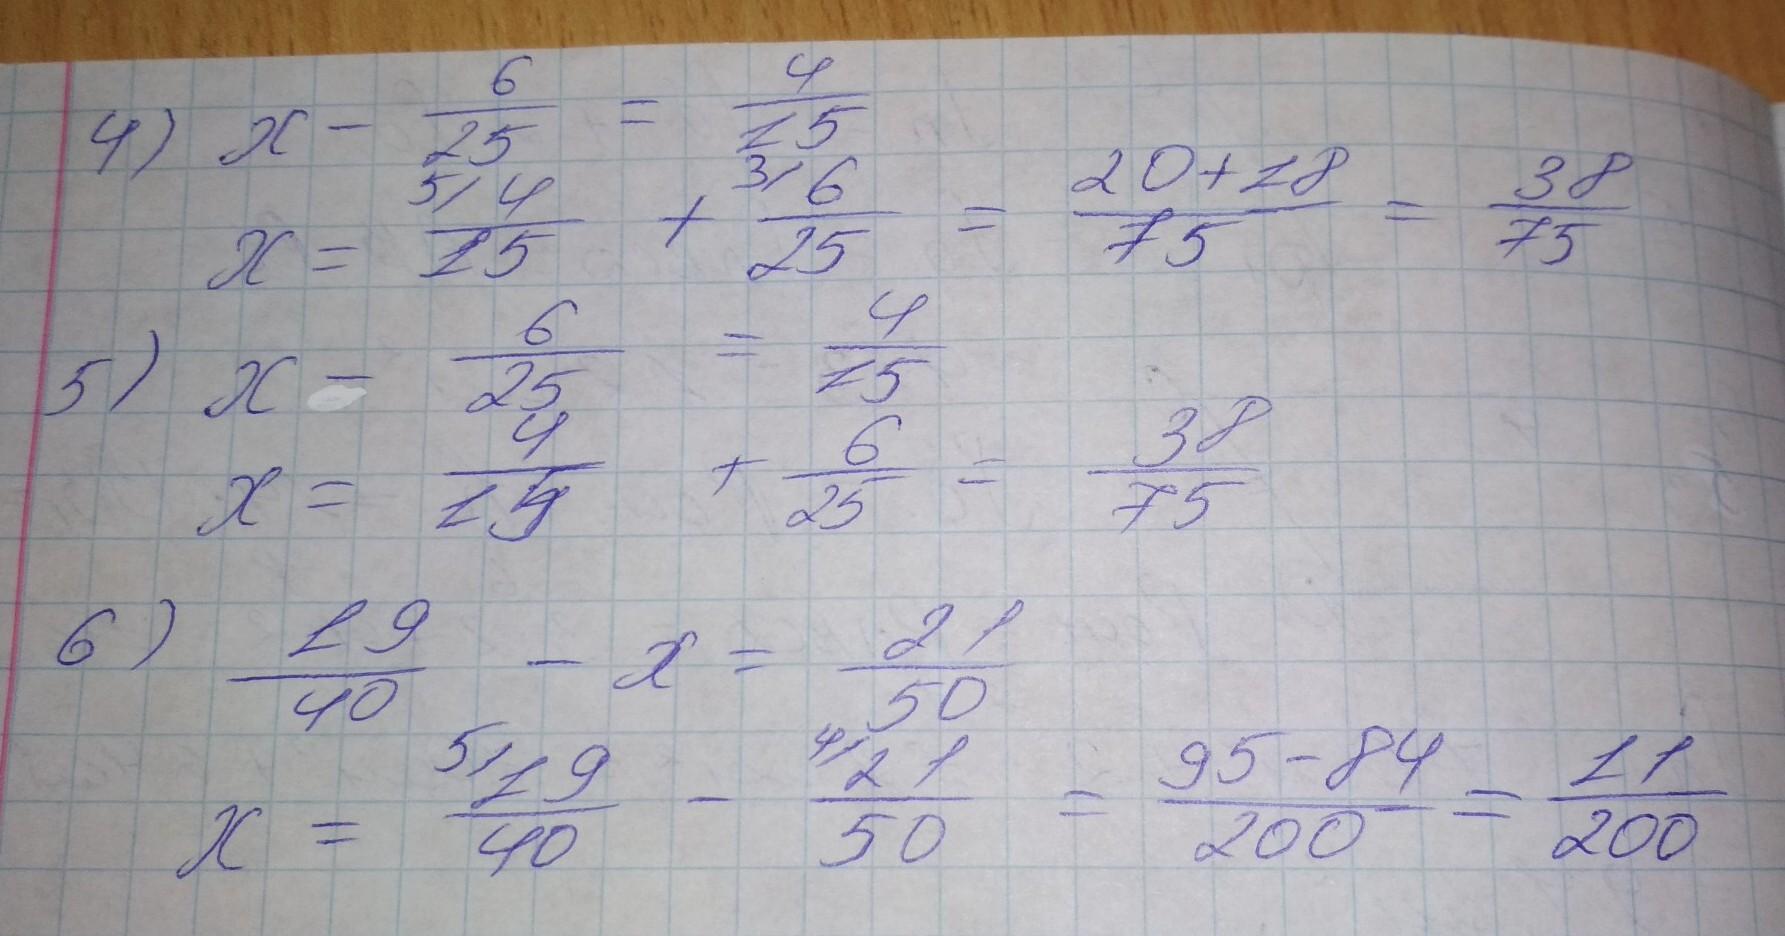 4) x - 6/25 = 4/15
x = 5/ 4/15 + 3/ 6/25 = 20+18/75 = 38/75
5) x - 6/25 = 4/15
x = 4/15 + 6/25 = 38/75
6) 19/40 - x = 21/50
x = 5/ 19/40 - 4/ 21/50 = 95-84/200 = 11/200